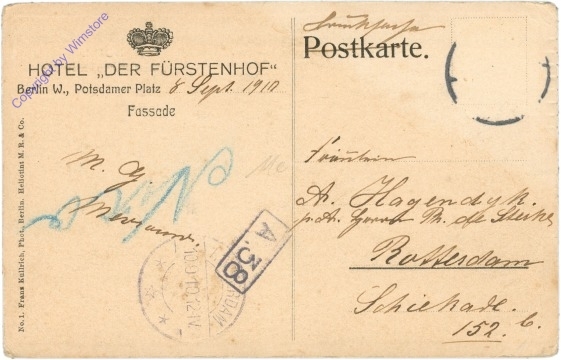 Copyright by Wimstore
HOTEL „DER FÜRSTENHOF“
Berlin W., Potsdamer Platz 8 Sept. 1910
Fassade
No. 1. Franz Kullrich, Phot., Berlin. Heliotint M. R. & Co.
M. G.
A.38
Drucksache
Postkarte.
Fräulein
A. Hagendyk.
p. Adr.
Rotterdam
Schiekade.
152 b.